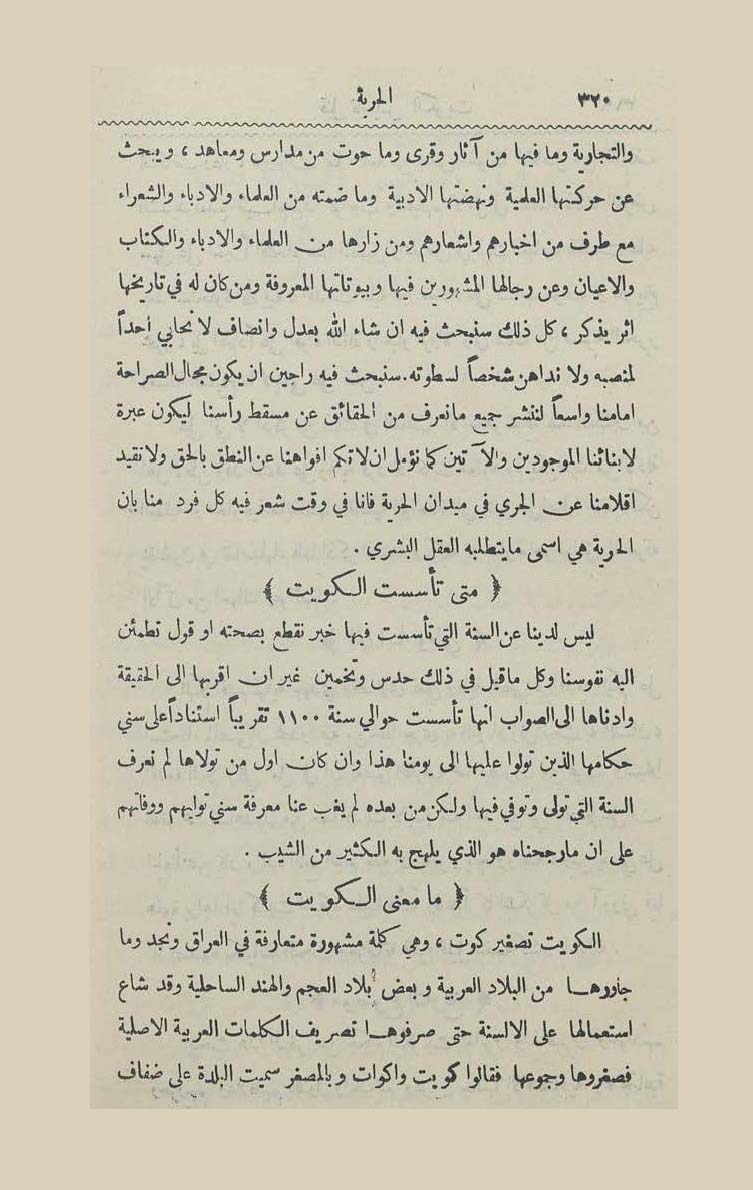 ٣٢٠
الحرية
والتجارية وما فيها من آثار وقرى وما حوت من مدارس ومعاهد ، ويبحث
عن حركتها العلمية ونهضتها الادبية وما ضمته من العلماء والادباء والشعراء
مع طرف من اخبارهم واشعارهم ومن زارها من العلماء والادباء والكتاب
والاعيان وعن رجالها المشهورين فيها وبيوتاتها المعروفة ومن كان له في تاريخها
اثر يذكر ، كل ذلك سنبحث فيه ان شاء الله بعدل وانصاف لا نحابي أحداً
لمنصبه ولا نداهن شخصاً لسطوته. سنبحث فيه راجين ان يكون مجال الصراحة
امامنا واسعاً لننشر جميع ما نعرف من الحقائق عن مسقط رأسنا ليكون عبرة
لابنائنا الموجودين والآتين كما نؤمل ان لا تكم افواهنا عن النطق بالحق ولا تقيد
اقلامنا عن الجري في ميدان الحرية فانا في وقت شعر فيه كل فرد منا بان
الحرية هي اسمى ما يتطلبه العقل البشري .
﴿ متى تأسست الكويت ﴾
ليس لدينا عن السنة التي تأسست فيها خبر نقطع بصحته او قول تطمئن
اليه نفوسنا وكل ما قيل في ذلك حدس وتخمين غير ان اقربها الى الحقيقة
وادناها الى الصواب انها تأسست حوالي سنة ١١٠٠ تقريباً استناداً على سني
حكامها الذين تولوا عليها الى يومنا هذا وان كان اول من تولاها لم نعرف
السنة التي تولى وتوفي فيها ولكن من بعده لم يغب عنا معرفة سني توليهم ووفاتهم
على ان ما رجحناه هو الذي يلهج به الكثير من الشيب .
﴿ ما معنى الكويت ﴾
الكويت تصغير كوت ، وهي كلمة مشهورة متعارفة في العراق ونجد وما
جاورها من البلاد العربية وبعض بلاد العجم والهند الساحلية وقد شاع
استعمالها على الالسنة حتى صرفوها تصريف الكلمات العربية الاصلية
فصغروها وجموعها فقالوا كويت واكوات وبالمصغر سميت البلدة على ضفاف